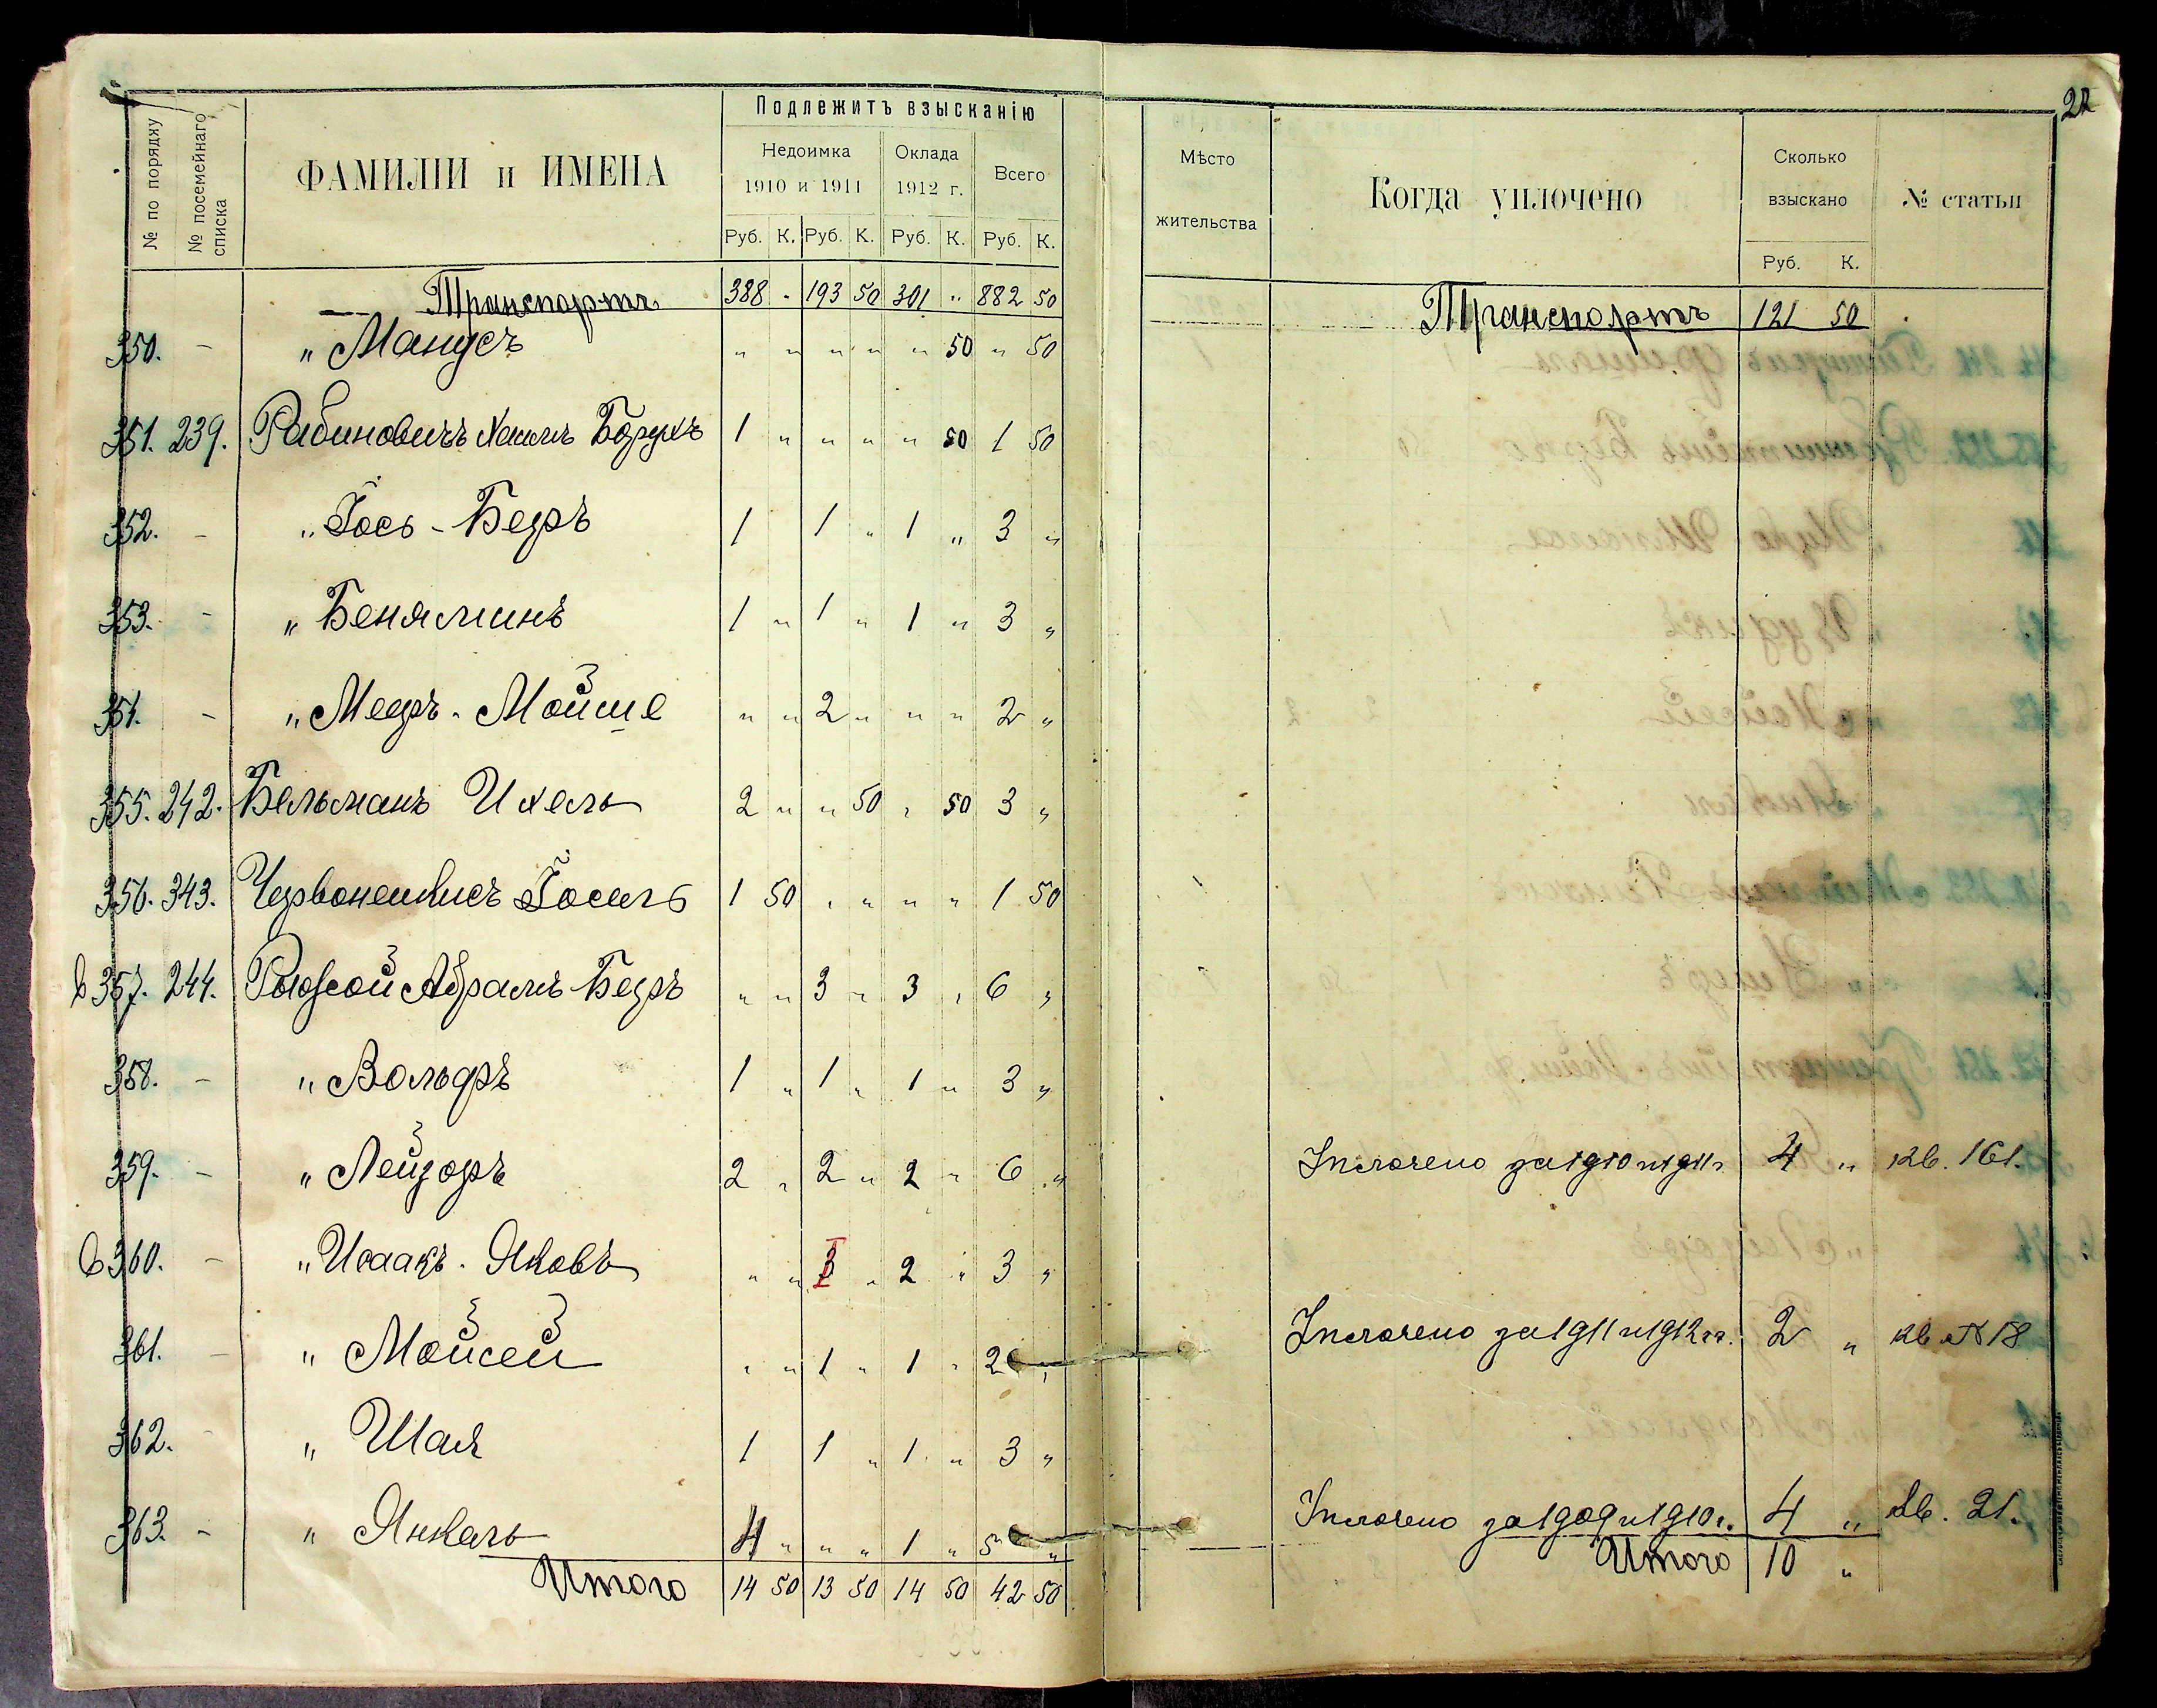 22
№ по порядку
№ посемейнаго списка
ФАМИЛІИ и ИМЕНА
Подлежитъ взысканію
Недоимка 1910 и 1911
Оклада 1912 г.
Всего
Руб. К. Руб. К. Руб. К. Руб. К.
Мѣсто жительства
Когда уплочено
Сколько взыскано
Руб. К.
№ статьи
Транспортъ 388 " 193 50 301 " 882 50
Транспортъ 121 50
350. - " Манусъ " " " " " 50 " 50
351. 239. Рабиновичъ Хаимъ Борухъ 1 " " " " 50 1 50
352. - " Іось-Беръ 1 1 " 1 " 3 "
353. - " Беняминъ 1 " 1 " 1 " 3 "
354. - " Мееръ-Мойше " " 2 " " " 2 "
355. 242. Бельманъ Ихель 2 " " 50 " 50 3 "
356. 343. Іосель 1 50 " " " " 1 50
357. 244. Абрамъ-Беръ " " 3 " 3 " 6 "
358. - " Вольфъ 1 " 1 " 1 " 3 "
359. - " Лейзоръ 2 " 2 " 2 " 6 "
Уплочено за 1910 и 1911 г. 4 " кв. 161.
360. - " Исаакъ-Яковъ " " " 2 " 3 "
361. - " Мойсей " " 1 " 1 " 2 "
Уплочено за 1911 и 1912 гг. 2 " кв. № 18
362. - " Шая 1 1 " 1 " 3 "
363. - " Янкель 4 " " " 1 " 5 "
Уплочено за 1909 и 1910 г. 4 " кв. 21.
Итого 14 50 13 50 14 50 42 50
Итого 10 "